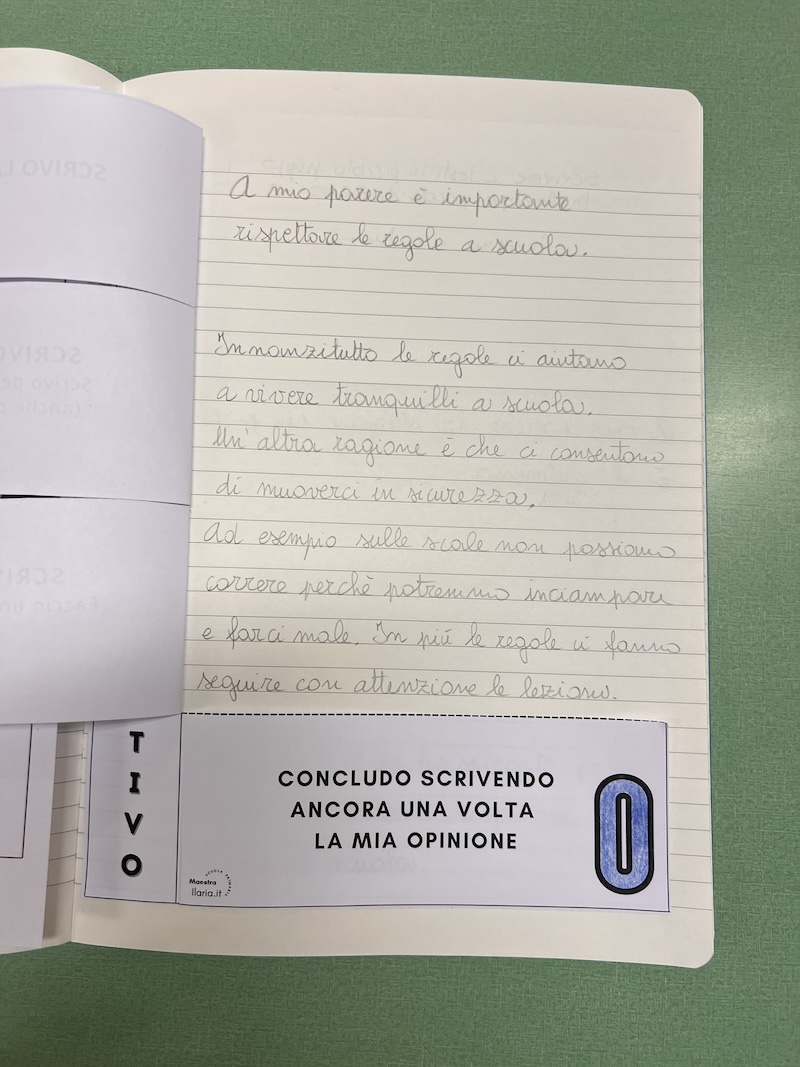 A mio parere è importante
rispettare le regole a scuola.
Innanzitutto le regole ci aiutano
a vivere tranquilli a scuola.
Un'altra ragione è che ci consentono
di muoverci in sicurezza.
Ad esempio sulle scale non possiamo
correre perchè potremmo inciampare
e farci male. In più le regole ci fanno
seguire con attenzione le lezioni.
TIVO
CONCLUDO SCRIVENDO
ANCORA UNA VOLTA
LA MIA OPINIONE
O
Maestra
Ilaria.it